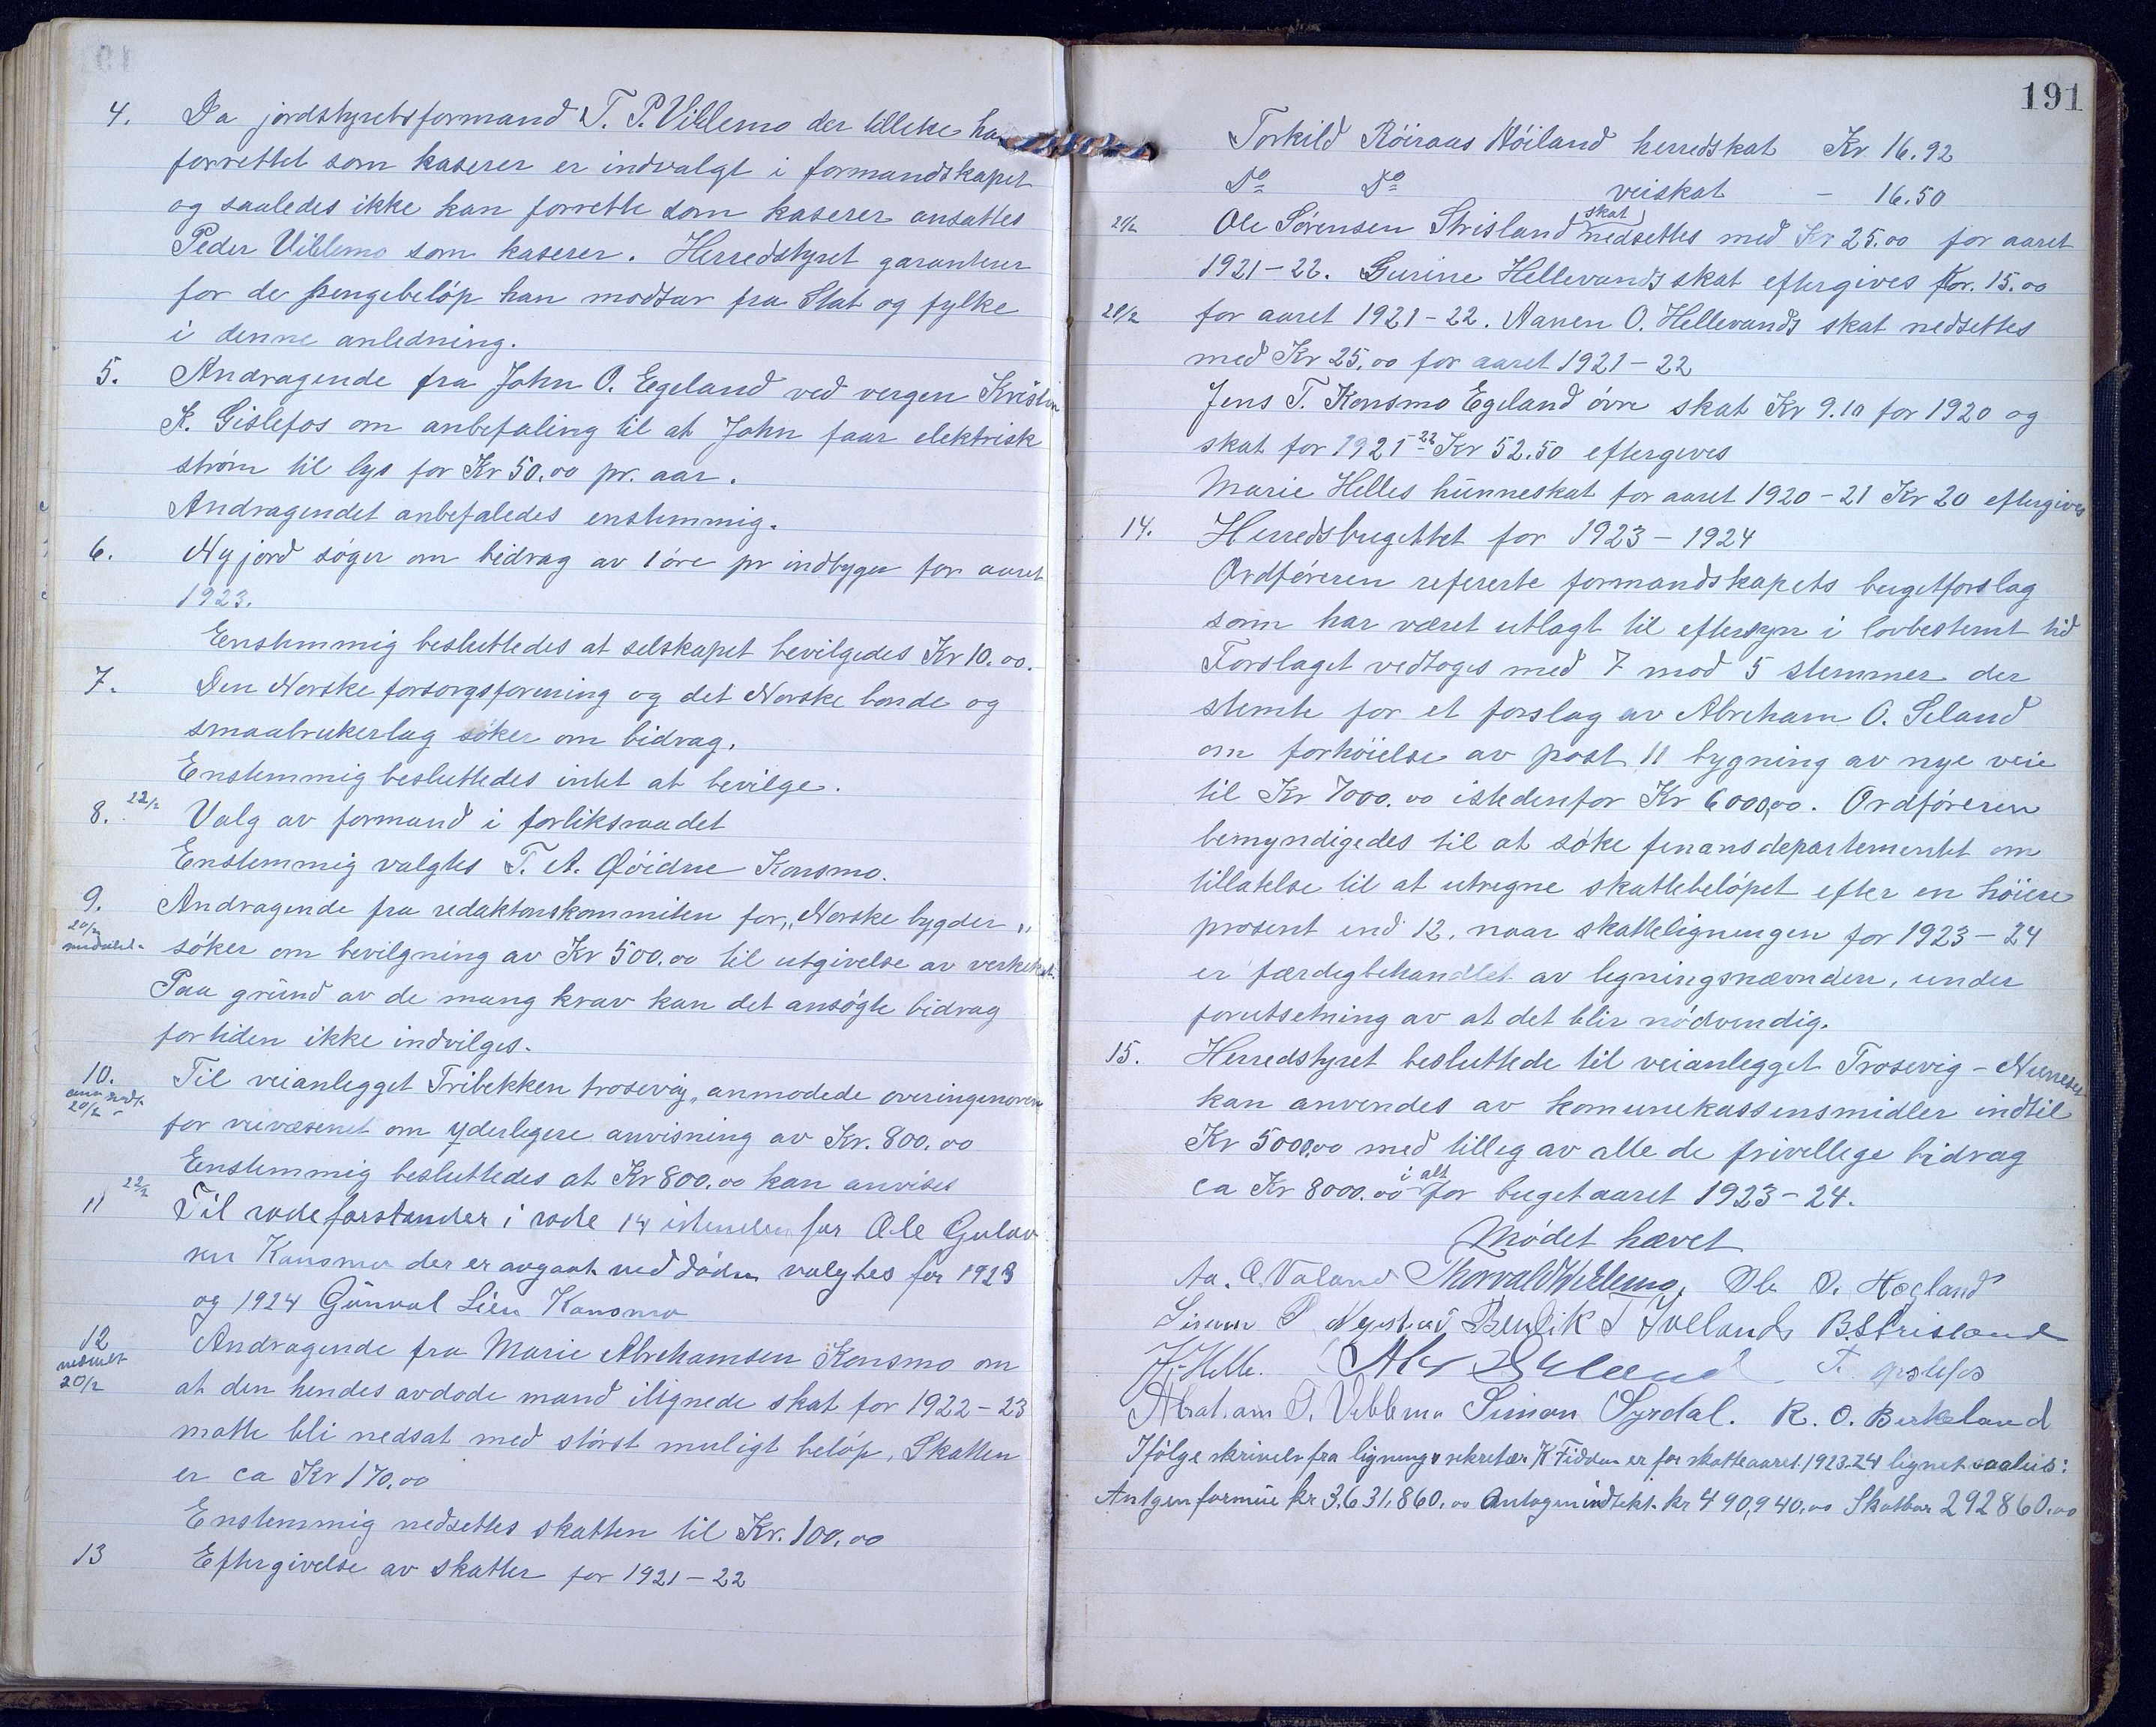 4. Da jordstyretsformand T. P. Viblemo der tilleke har
forrettet som kaserer er indvalgt i formandskapet
og saaledes ikke kan forrette som kaserer ansattes
Peder Viblemo som kaserer. Herredstyret garanterer
for de pengebeløp han modtar fra Stat og fylke
i denne anledning.
5. Andragende fra John O. Egeland ved vergen Kristen
K. Gislefos om anbefaling til at John faar elektrisk
strøm til lys for Kr 50.00 pr. aar.
Andragendet anbefaledes enstemmig.
6. Ny jord søger om bidrag av 1 øre pr indbyger for aaret
1923.
Enstemmig besluttedes at selskapet bevilgedes Kr 10.00.
7. Den Norske forsorgsforening og det Norske bonde og
smaabrukerlag søker om bidrag.
Enstemmig besluttedes intet at bevilge.
8. 22/2 Valg av formand i forliksraadet
Enstemmig valgtes T. A. Øidne Konsmo.
9. Andragende fra redaktonskommiten for „Norske bygder„
20/2 søker om bevilgning av Kr 500.00 til utgivelse av verket
Paa grund av de mang krav kan det ansøgte bidrag
for tiden ikke indvilges.
10. Til veianlegget Tribekken trosevig, anmodede overingenøren
20/2 for veivæsenet om yderligere anvisning av Kr. 800.00
Enstemmig besluttedes at Kr 800.00 kan anvises
11 22/2 Til rodeforstander i rode 14 istenden for Ole Gulav
sen Konsmo der er avgaat ved døden valgtes for 1923
og 1924 Gunval Lien Konsmo
12 Andragende fra Marie Abrehamsen Konsmo om
20/2 at den hendes avdøde mand ilignede skat for 1922-23
matte bli nedsat med størst muligt beløp. Skatten
er ca Kr 170.00
Enstemmig nedsettes skatten til Kr. 100.00
13 Eftergivelse av skatter for 1921-22
191
Torkild Røiraas Høiland herredskat Kr 16.92
Do Do veiskat - 16.50
20/2 Ole Sørensen Strisland skat nedsettes med Kr 25.00 for aaret
1921-22. Gurine Hellevands skat eftergives Kr. 15.00
20/2 for aaret 1921-22. Aanen O. Hellevands skat nedsettes
med Kr 25.00 for aaret 1921-22
Jens T. Konsmo Egeland øvre skat Kr 9.10 for 1920 og
skat for 1921-22 Kr 52.50 eftergives
Marie Helles hunneskat for aaret 1920-21 Kr 20 eftergives
14. Herredsbugettet for 1923-1924
Ordføreren refererte formandskapets bugetforslag
som har været utlagt til eftersyn i lovbestemt tid
Forslaget vedtoges med 7 mod 5 stemmer der
stemte for et forslag av Abreham O. Seland
om forhøielse av post 11 bygning av nye veie
til Kr 7000.00 istedenfor Kr 6000,00. Ordføreren
bemyndigedes til at søke finansdepartementet om
tillatelse til at utregne skattebeløpet efter en høiere
prosent end 12, naar skatteligningen for 1923-24
er færdigbehandlet av ligningsnævnden, under
forutsetning av at det blir nødvendig.
15. Herredstyret besluttede til veianlegget Trosevig -
kan anvendes av komunekassensmidler indtil
Kr 5000.00 med tilleg av alle de frivellige bidrag
ca Kr 8000.00 i alt for bugetaaret 1923-24.
Mødet hævet
Aa. O. Valand Thorvald Viblemo, Ole O. Høgland
Sireneus P Nystad Bendik T Ivelands B. Strisland
J. Helle. Abr O Seland T. Gislefos
Abraham T. Viblemo Simon Syrdal. K. O. Birkeland
Ifølge skrivels fra ligningssekretær K Fiddan er for skatteaaret 1923-24 lignet saaleis:
Antgen formue kr 3,631,860.00 Antagen indtekt. kr 490,940.00 Skatbar 292860.00